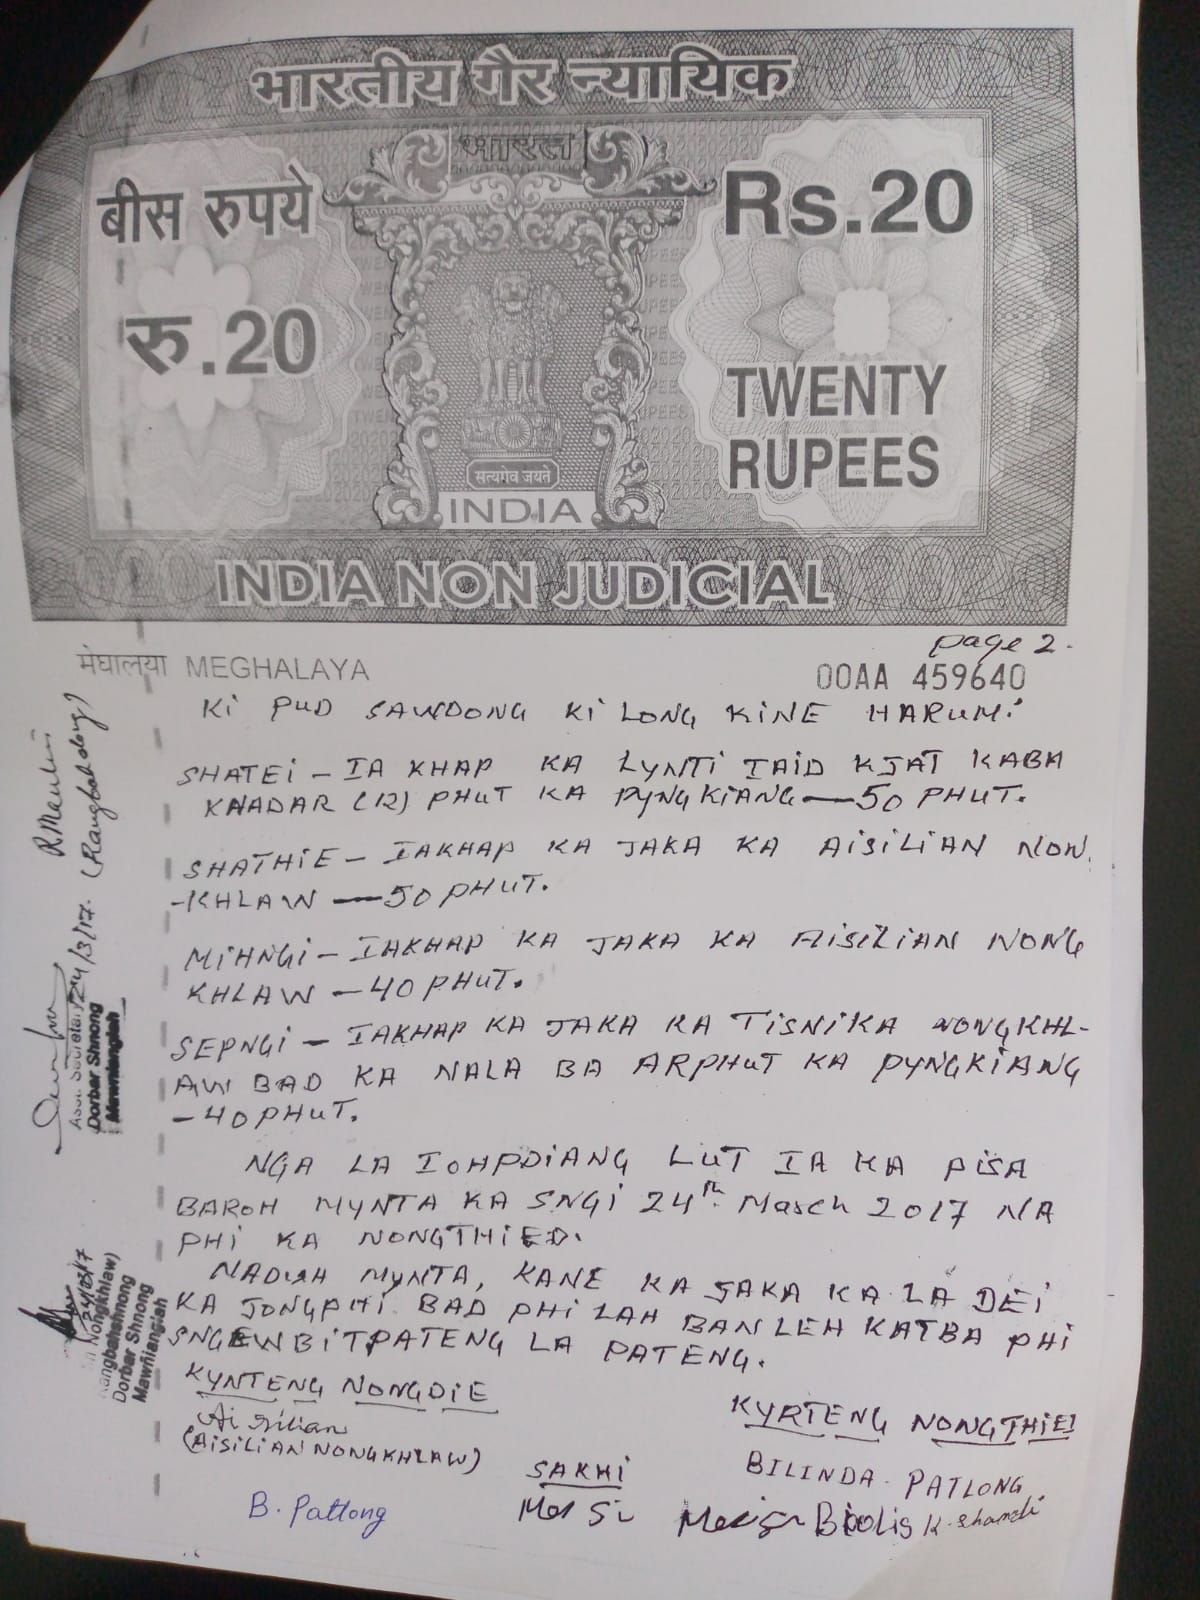 भारतीय गैर न्यायिक
भारत
बीस रुपये
Rs.20
रु.20
TWENTY
RUPEES
सत्यमेव जयते
INDIA
INDIA NON JUDICIAL
page 2.
मेघालया MEGHALAYA
00AA 459640
KI PUD SAWDONG KI LONG KINE HARUM:
SHATEI – IA KHAP KA LYNTI IAID KJAT KABA
KHADAR (12) PHUT KA PYNGKIANG — 50 PHUT.
SHATHIE – IAKHAP KA JAKA KA AISILIAN NON
-KHLAW — 50 PHUT.
MIHNGI – IAKHAP KA JAKA KA AISILIAN NONG
KHLAW – 40 PHUT.
SEPNGI – IAKHAP KA JAKA KA TISNIKA NONGKHL-
AW BAD KA NALA BA ARPHUT KA PYNGKIANG
– 40 PHUT.
NGA LA IOHPDIANG LUT IA KA PISA
BAROH MYNTA KA SNGI 24th March 2017 NA
PHI KA NONGTHIED.
NADUH MYNTA, KANE KA JAKA KA LA DEI
KA JONGPHI BAD PHI LAH BAN LEH KATBA PHI
SNGEWBIT PATENG LA PATENG.
KYNTENG NONGDIE
Aisilian
(AISILIAN NONGKHLAW)
KYRTENG NONGTHIEI
BILINDA PATLONG
SAKHI
B. Patlong
(Rangbahdong)
24/3/17.
Asst. Secretary
Dorbar Shnong
Mawñiangiah
24/03/17
Nongkhlaw)
Rangbahshnong
Dorbar Shnong
Mawñiangiah